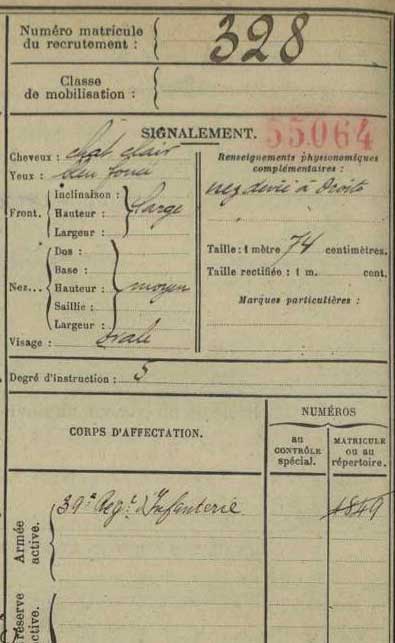 Numéro matricule
du recrutement :
328
Classe
de mobilisation :
SIGNALEMENT.
55064
Cheveux : chat clair
Yeux : bleu foncé
Front. Inclinaison :
Hauteur : large
Largeur :
Nez... Dos :
Base :
Hauteur : moyen
Saillie :
Largeur :
Visage : ovale
Renseignements physionomiques
complémentaires :
nez dévié à droite
Taille : 1 mètre 74 centimètres.
Taille rectifiée : 1 m. cent.
Marques particulières :
Degré d'instruction : 5
CORPS D'AFFECTATION.
NUMÉROS
au
CONTRÔLE
spécial.
MATRICULE
ou au
répertoire.
Armée
active.
39e Regt d'Infanterie
1849
réserve
active.